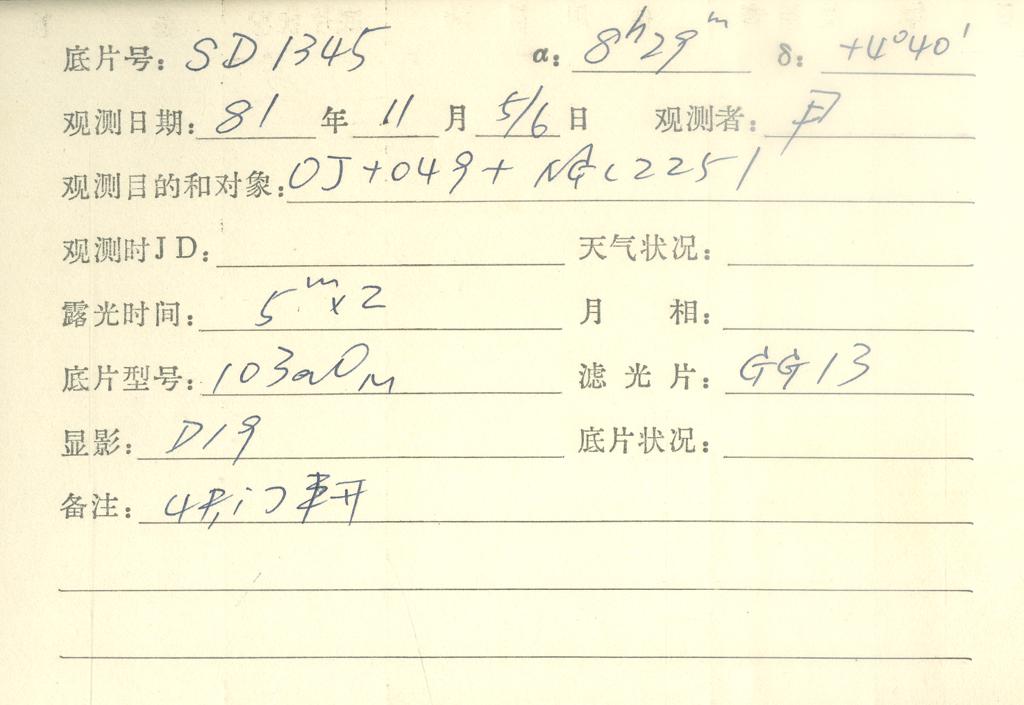 底片号: SD1345 α: 8h29m δ: +4°40'
观测日期: 81 年 11 月 5/6 日 观测者:
观测目的和对象: OJ+049+NGC2251
观测时JD: 天气状况:
露光时间: 5m×2 月 相:
底片型号: 103aO 滤光片: GG13
显影: D19 底片状况:
备注: